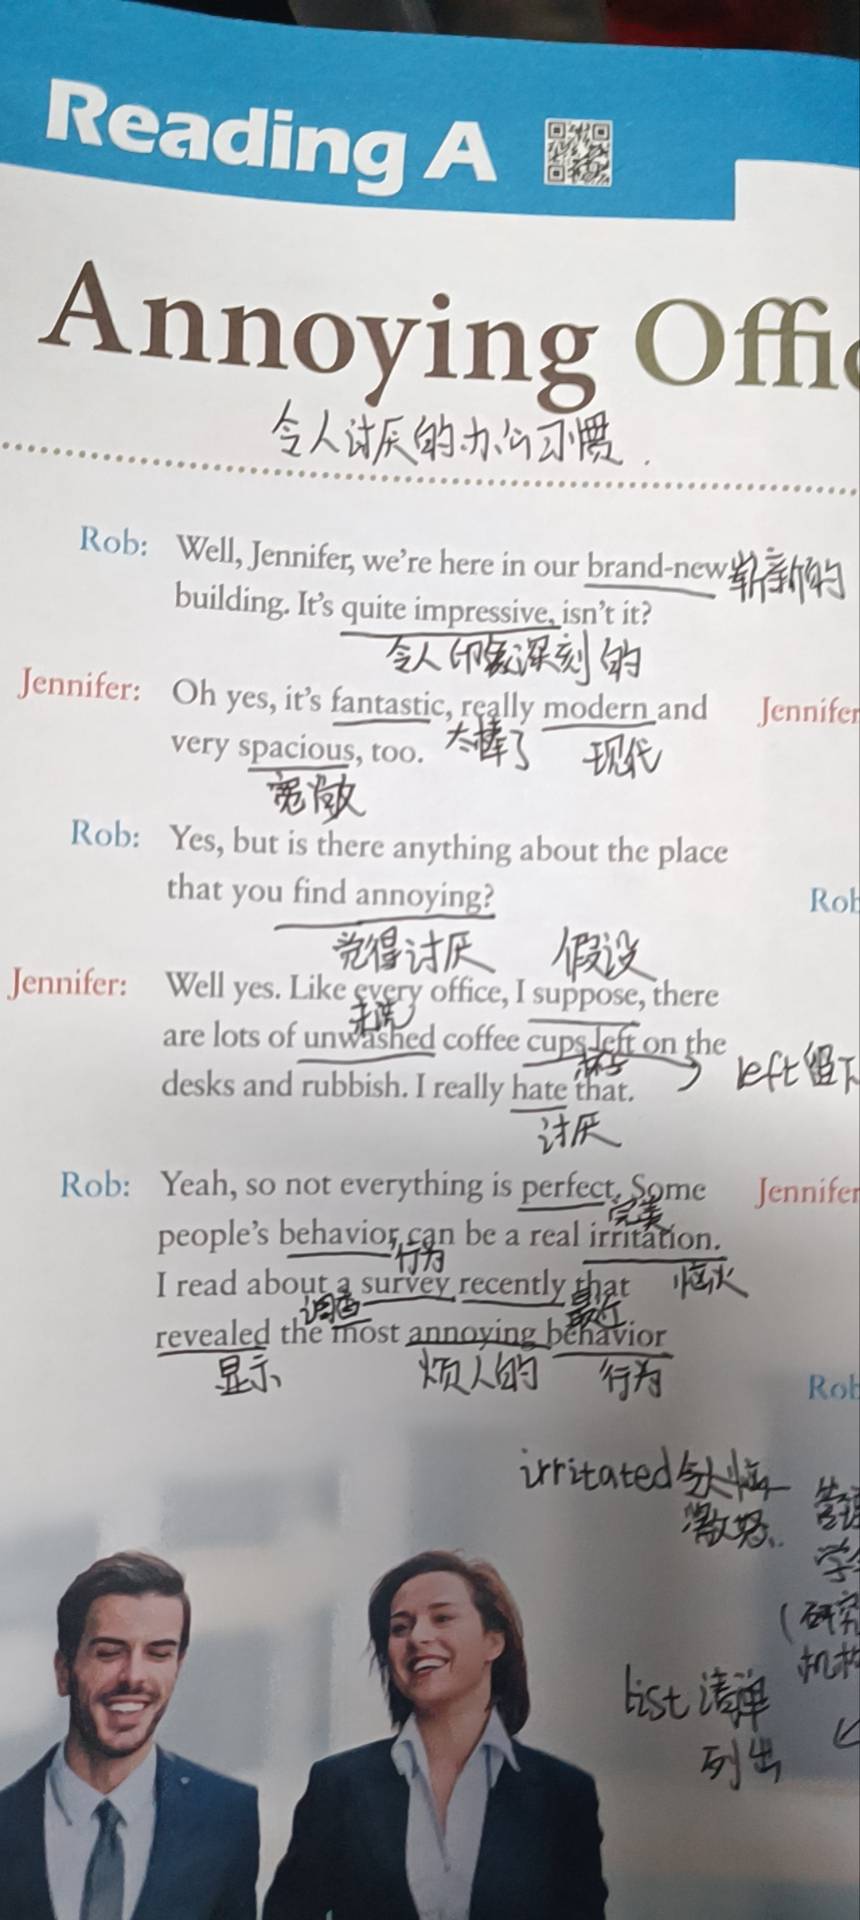 Reading A
Annoying Offic
令人讨厌的办公习惯.
Rob: Well, Jennifer, we're here in our brand-new 崭新的
building. It's quite impressive, isn't it?
令人印象深刻的
Jennifer: Oh yes, it's fantastic, really modern and
太棒了 现代
very spacious, too.
宽敞
Rob: Yes, but is there anything about the place
that you find annoying?
觉得讨厌 假设
Jennifer: Well yes. Like every office, I suppose, there
未洗
are lots of unwashed coffee cups left on the
杯子 left 留下
desks and rubbish. I really hate that.
讨厌
Rob: Yeah, so not everything is perfect. Some
完美
people's behavior can be a real irritation.
行为 恼火
I read about a survey recently that
调查 最近
revealed the most annoying behavior
显示 烦人的 行为
irritated
激怒
list 清单
列出
Jennifer
Rob
Jennifer
Rob
学
(研究
机构